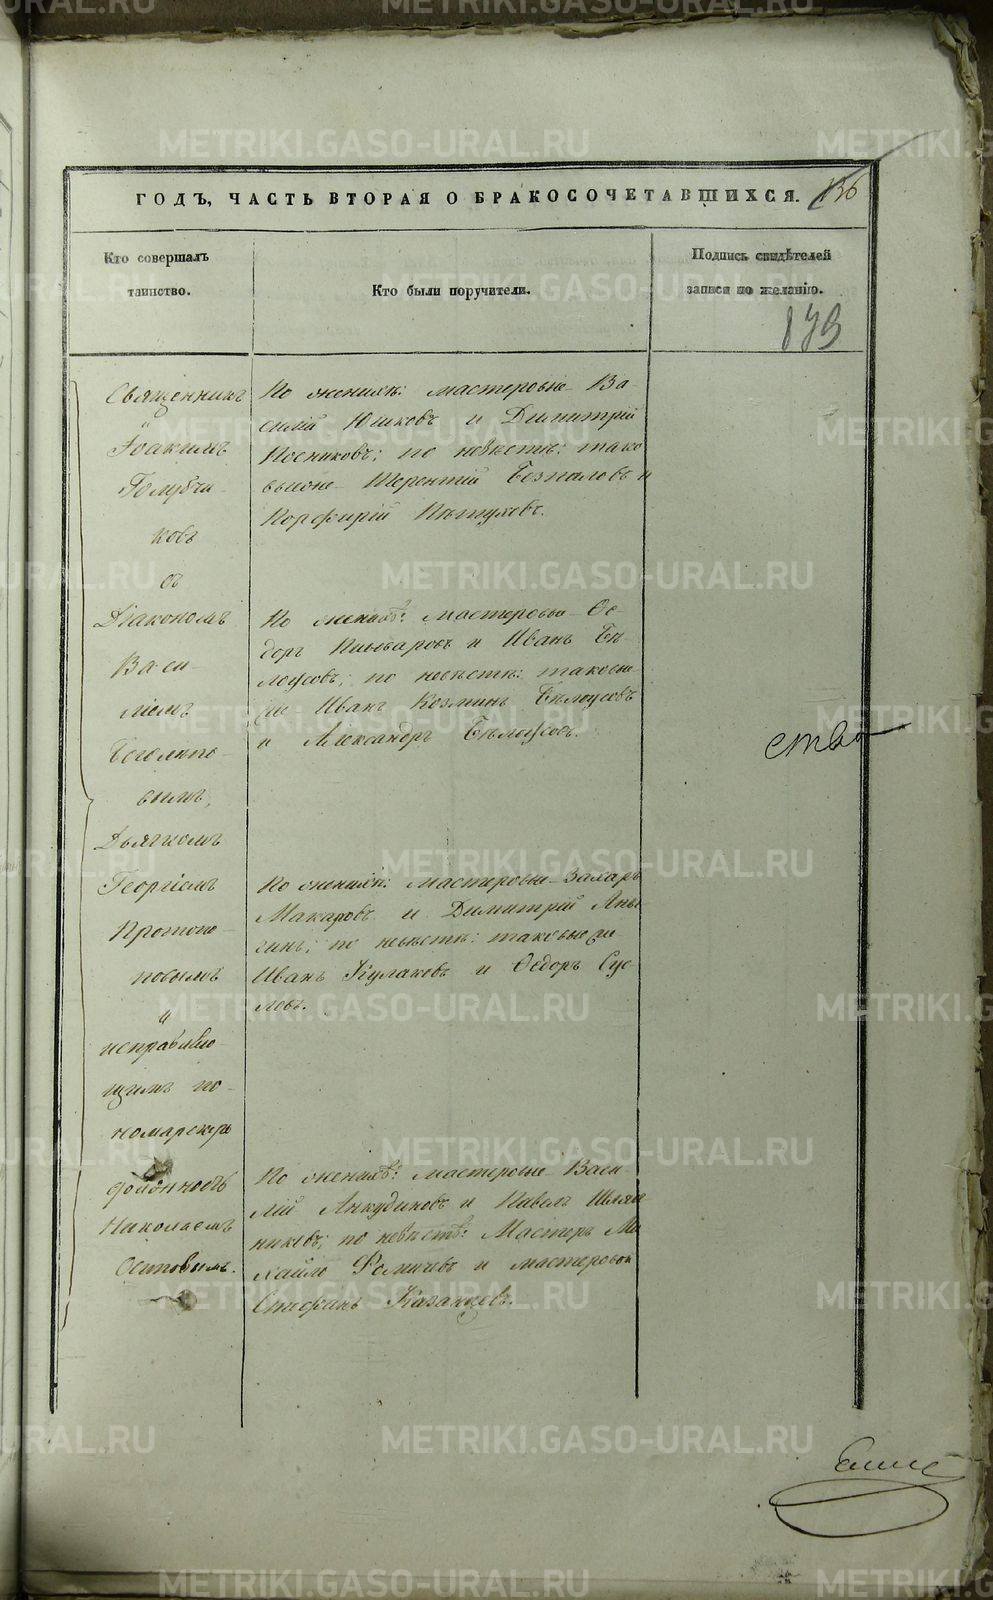 ГОДЪ, ЧАСТЬ ВТОРАЯ О БРАКОСОЧЕТАВШИХСЯ.
136
Кто совершалъ
таинство.
Кто были поручители.
Подпись свидѣтелей
записи по желанію.
879
Священникъ
Іоакимъ
Голубчи-
ковъ
съ
Діакономъ
Васи-
ліемъ
Боголепо-
вымъ,
Дьячкомъ
Георгіемъ
Протопо-
повымъ
и
исправляю-
щимъ по-
номарскую
должность
Николаемъ
Осиповымъ.
По женихѣ: мастеровые Ва-
силій Юшковъ и Димитрій
Носниковъ; по невѣстѣ: тако
выеже Терентій Безпаловъ и
Порфирій Пѣтуховъ.
По женихѣ: мастеровые Ѳе-
доръ Пивоваровъ и Иванъ Бѣ-
лоусовъ; по невѣстѣ: таковые
же Иванъ Козминъ Бѣлоусовъ
и Александръ Бѣлоусовъ.
По женихѣ: мастеровые Захаръ
Макаровъ и Димитрій
по невѣстѣ: таковые же
Иванъ Кулаковъ и Ѳедоръ Сус-
ловъ.
По женихѣ: мастеровые Васи
лій Анкудиновъ и Павелъ Шлян
никовъ; по невѣстѣ: Мастеръ Ми
хайло Фомичевъ и мастеровой
Стефанъ Казанцевъ.
ства
METRIKI.GASO-URAL.RU